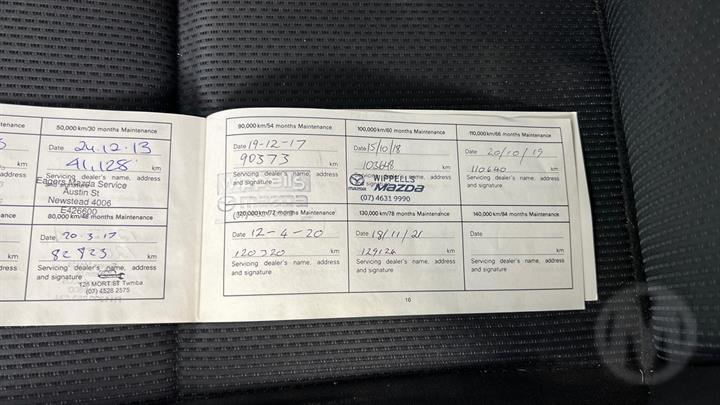 50,000 km/30 months Maintenance
Date 24.12.13
41,128 km
Servicing dealer's name, address
and signature
Eagers Mazda Service
Austin St
Newstead 4006
E426600
80,000 km/48 months Maintenance
Date 20.3.17
82823 km
Servicing dealer's name, address
and signature
126 MORT ST Twmba
(07) 4528 2575
90,000 km/54 months Maintenance
Date 19-12-17
90373 km
Servicing dealer's name, address
and signature
WIPPELLS
mazda
100,000 km/60 months Maintenance
Date 15/10/18
103648 km
Servicing dealer's name, address
and signature
WIPPELLS
mazda
(07) 4631 9990
110,000 km/66 months Maintenance
Date 20/10/19
110640 km
Servicing dealer's name, address
and signature
120,000 km/72 months Maintenance
Date 12-4-20
120320 km
Servicing dealer's name, address
and signature
130,000 km/78 months Maintenance
Date 18/11/21
129124 km
Servicing dealer's name, address
and signature
140,000 km/84 months Maintenance
Date
km
Servicing dealer's name, address
and signature
16